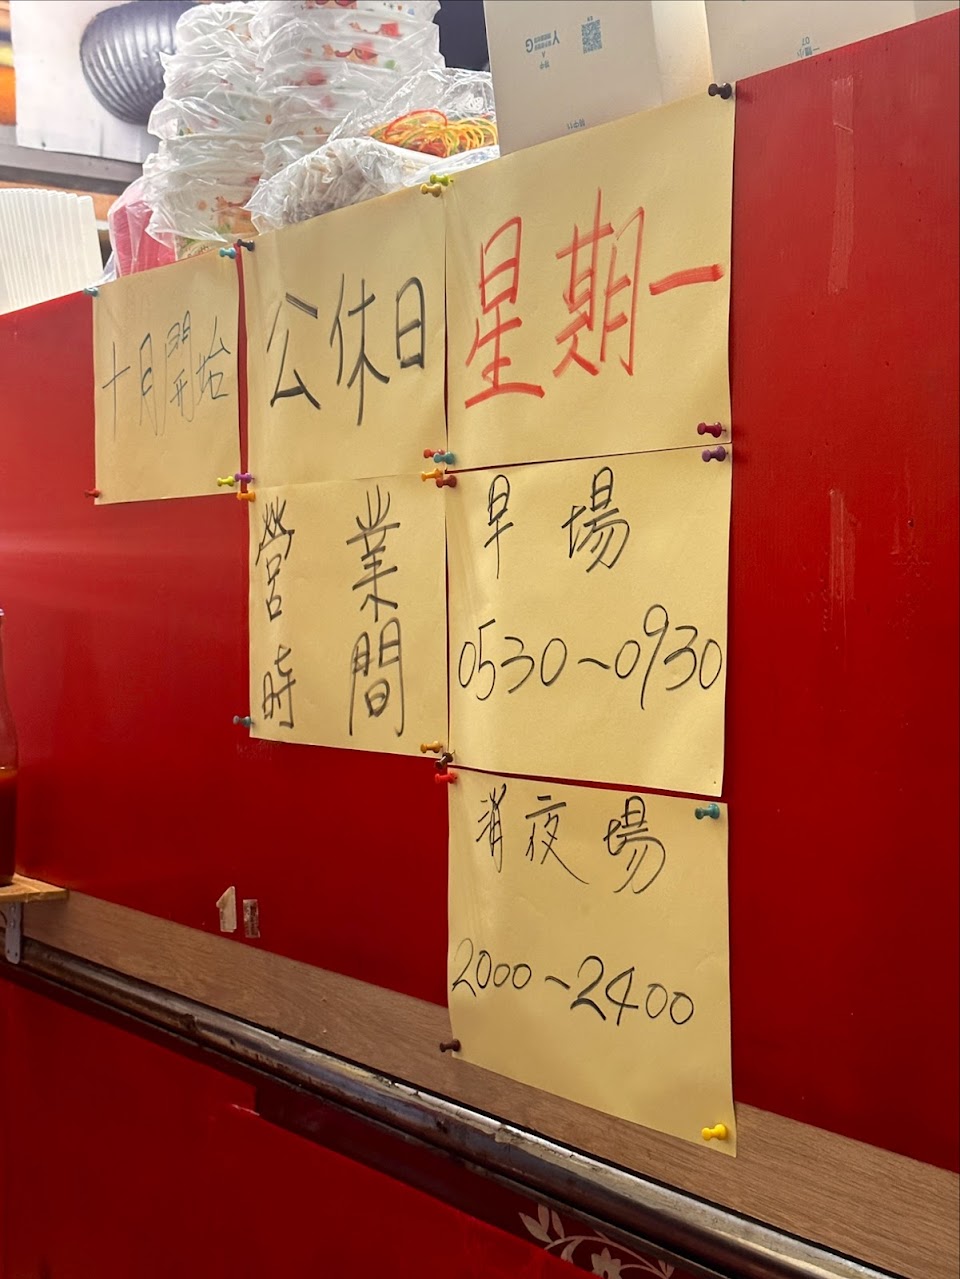 十月開始
公休日
星期一
營業
時間
早場
0530~0930
消夜場
2000~2400